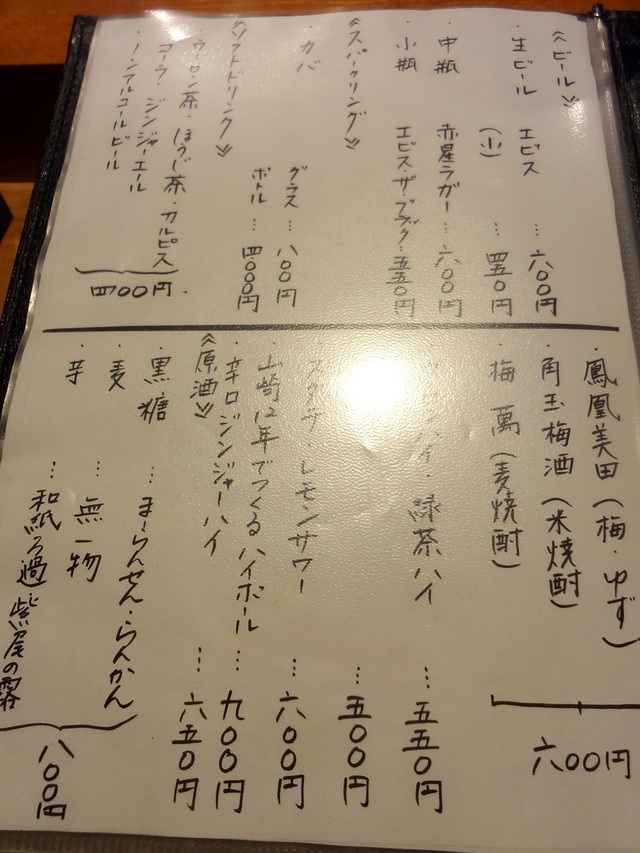 《ビール》
・生ビール エビス … 六〇〇円
(小) … 四五〇円
・中瓶 赤星ラガー … 六〇〇円
・小瓶 エビス・ザ・ブラック … 五五〇円
《スパークリング》
・カバ グラス … 八〇〇円
ボトル … 四〇〇〇円
《ソフトドリンク》
・ウーロン茶・ほうじ茶・カルピス
・コーラ・ジンジャーエール
・ノンアルコールビール
四〇〇円
・鳳凰美田(梅・ゆず)
・角玉梅酒(米焼酎)
・梅萬(麦焼酎)
六〇〇円
ハイ・緑茶ハイ … 五五〇円
… 五〇〇円
・レモンサワー … 六〇〇円
・山崎12年でつくるハイボール … 九〇〇円
・辛口ジンジャーハイ … 六五〇円
《原酒》
・黒糖 … まーらんせん・らんかん
・麦 … 無一物
・芋 … 和紙ろ過 紫尾の露
八〇〇円